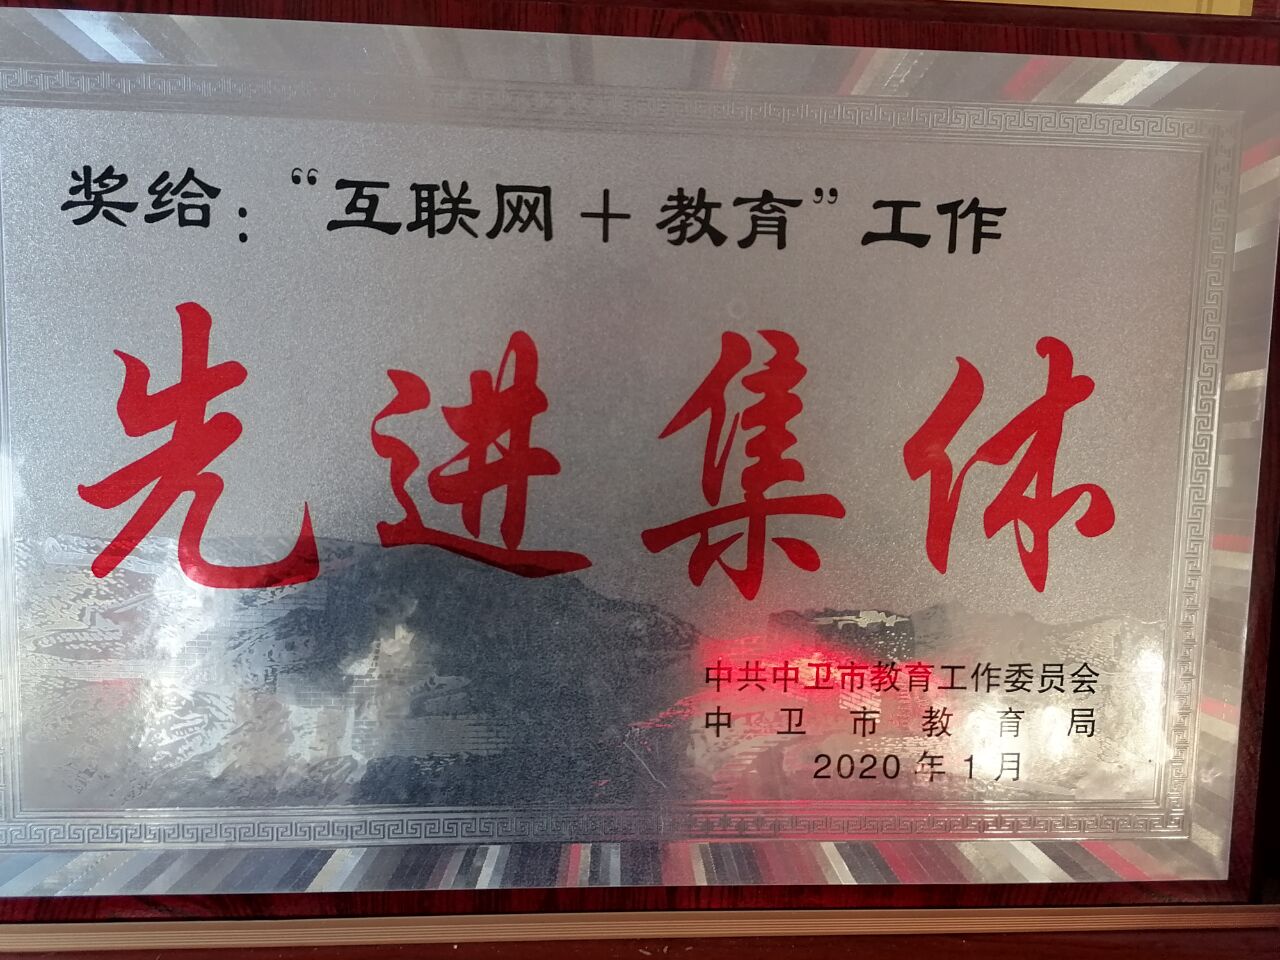 奖给：“互联网＋教育”工作
先进集体
中共中卫市教育工作委员会
中卫市教育局
2020年1月